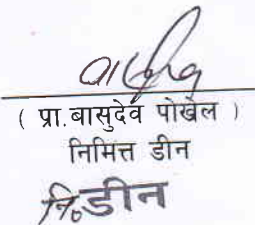 ( प्रा.बासुदेव पोखेल )
निमित्त डीन
नि.डीन